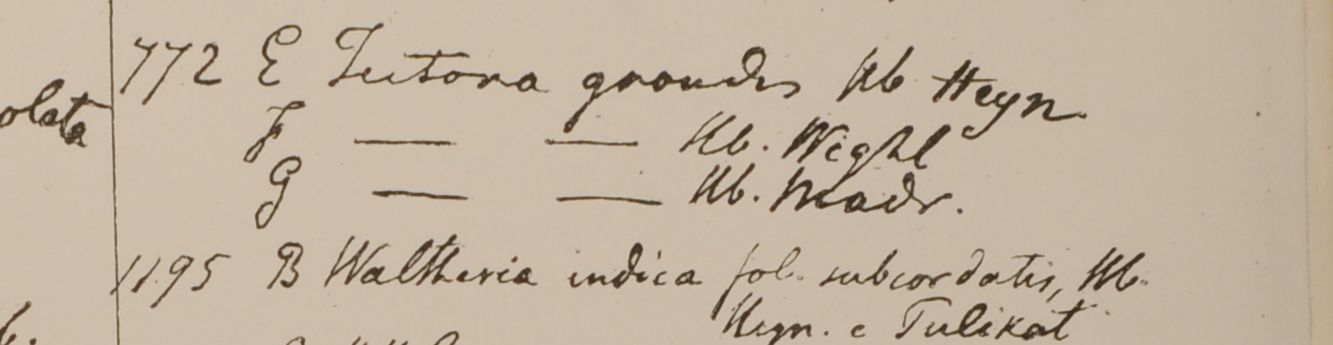 772 E Tectona grandis Hb Heyn
olata
F — — Hb. Wight
G — — Hb. Madr.
1195 B Waltheria indica fol. subcordatis, Hb.
Heyn. e Tulikat